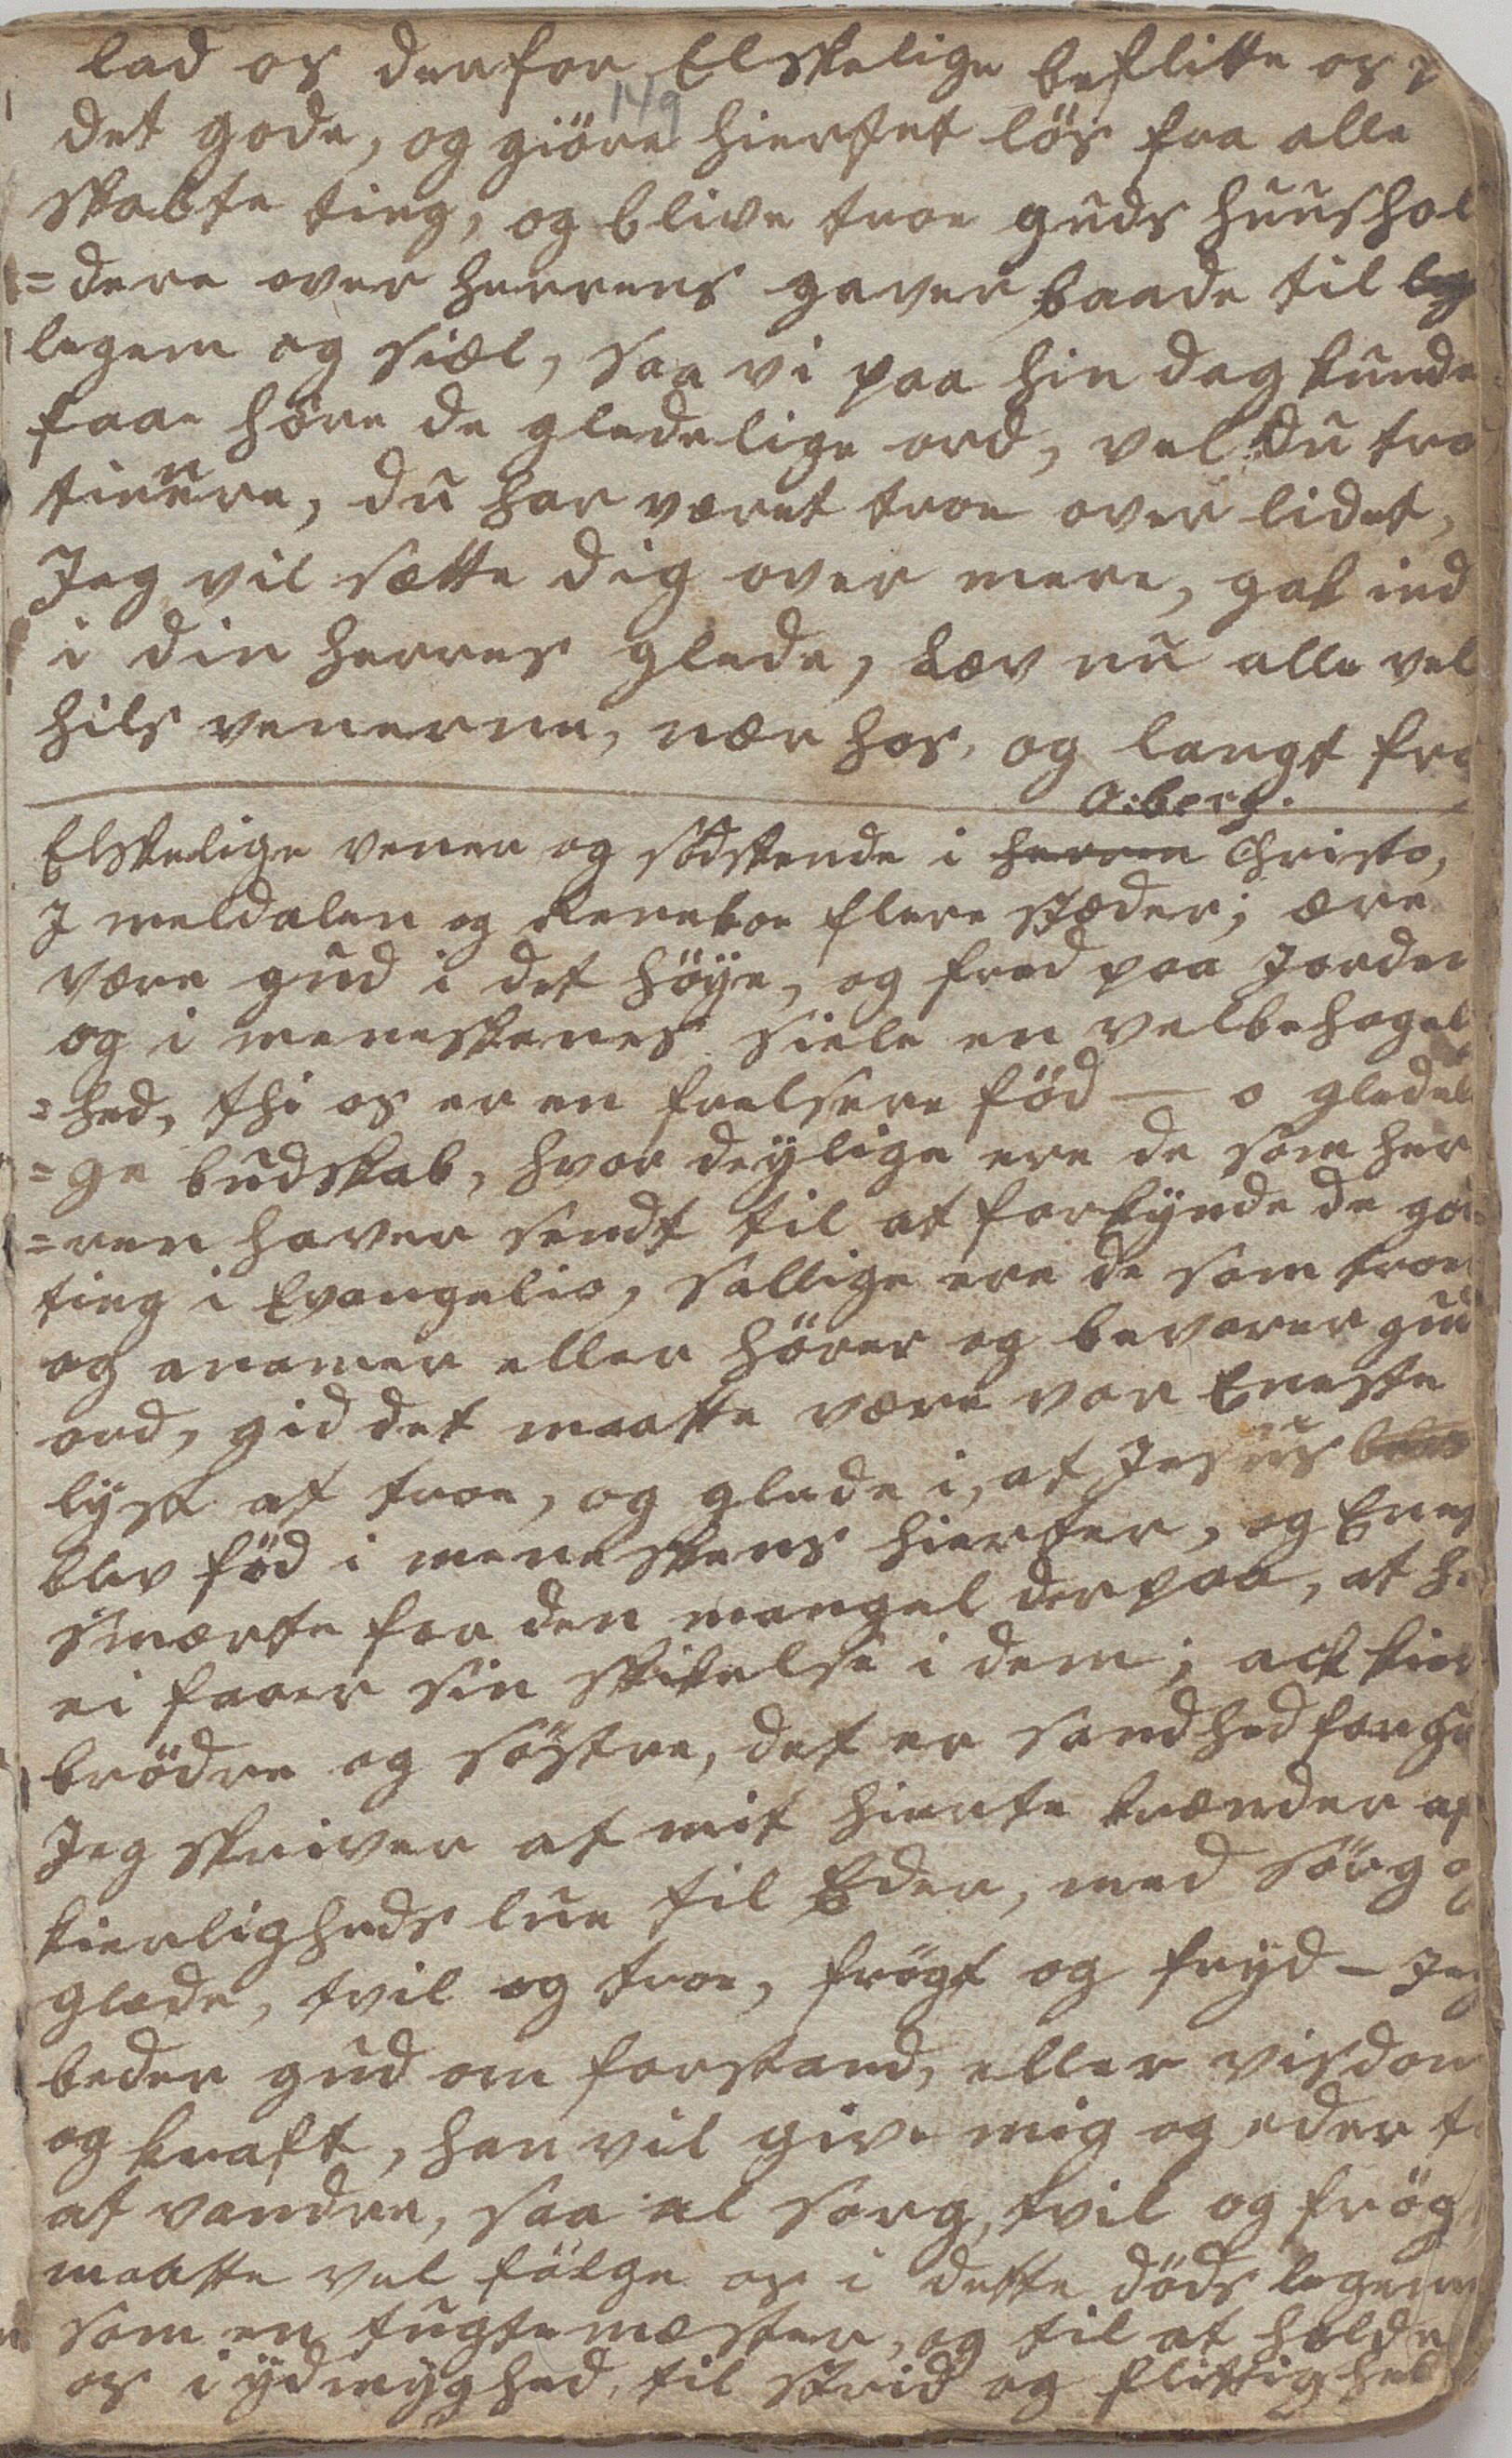 lad os derfor Elskelige beflitte os p
149
det gode, og giöre hiertet lös fra alle
skabte ting, og blive troe guds huushol
=dere over herrens gaver baade til
legem og siæl, saa vi paa hin dag kunde
faae höre de gledelige ord, vel du tro
tienere, du har været troe over lidet,
Jeg vil sætte dig over mere, gak ind
i din herres glede, Lev nu alle vel
hils venerne, nær hos, og langt fra
A: berg.
Elskelige vener og södskende i herren Christo,
J meldalen og Reneboe flere stæder; ære
være gud i det höye, og fred paa Jorden
og i meneskenes siele en velbehagel
=hed, thi os er en frelsere föd — o gledeli
=ge budskab, hvor deylige ere de som her
=ren haver sendt til at forkynde de gode
ting i Evangelio, sallige ere de som troer
og anamer eller hörer og bevarer gud
ord, gid det maatte være vor Eneste
lyst at troe, og glede i, at Jesus
blev föd i meneskens hierter, og Enes
smærte for den mangel derpaa, at h
ei faaer sin skikelse i dem; ack kiere
brödre og söstre, det er sandhed for gu
Jeg skriver at mit hierte brænder af
kierligheds lue til Eder, med sörg og
glæde, tvil og troe, frögt og fryd – Jeg
beder gud om forstand, eller visdom
og kraft, han vil give mig og eder t
at vandre, saa al sorg, tvil og frög
maatte vel fölge os i dette döds legem
som en tugtemæster, og til at holde
os i ydmyghed, til strid og flittighed